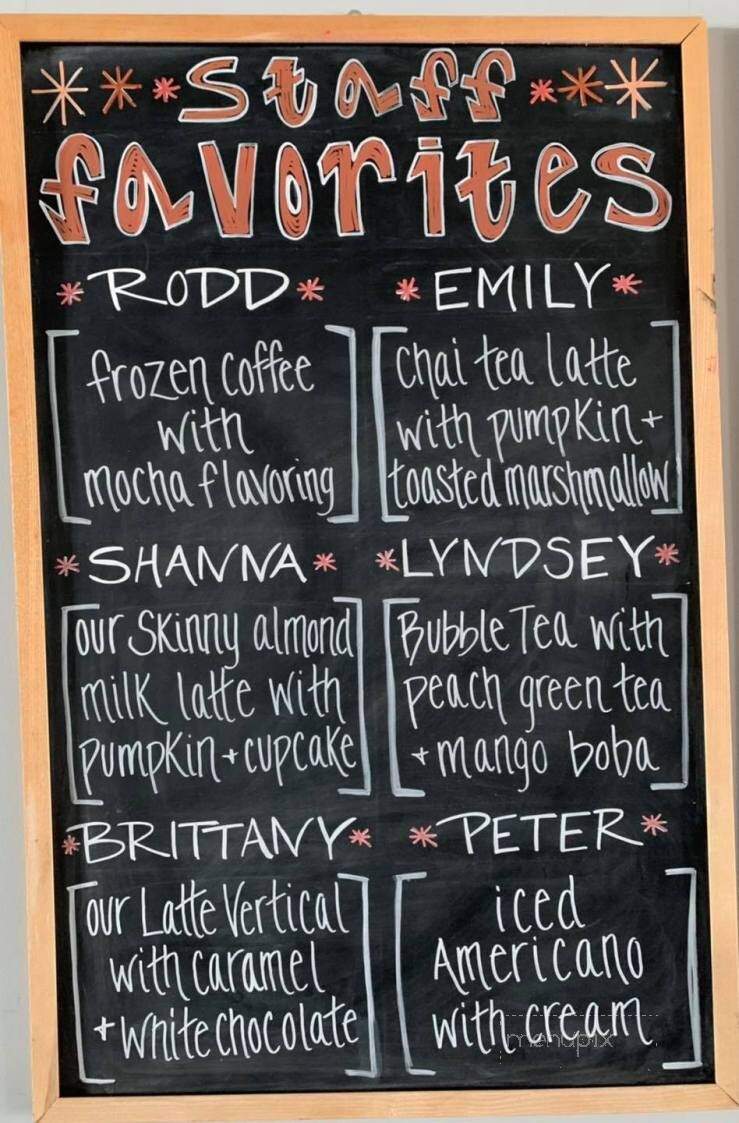 staff
favorites
RODD
frozen coffee
with
mocha flavoring
EMILY
chai tea latte
with pumpkin +
toasted marshmallow
SHANNA
our skinny almond
milk latte with
pumpkin + cupcake
LYNDSEY
Bubble Tea with
peach green tea
+ mango boba
BRITTANY
our Latte Vertical
with caramel
+ white chocolate
PETER
iced
Americano
with cream
menupix